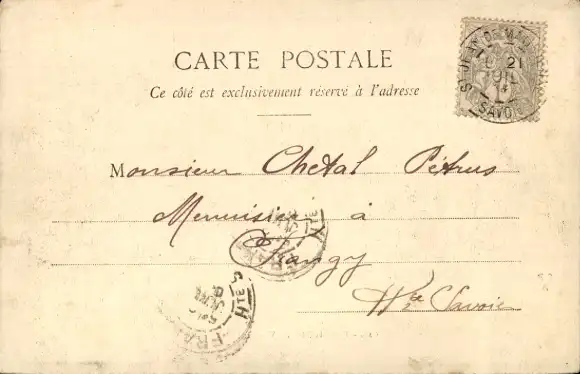 CARTE POSTALE
Ce côté est exclusivement réservé à l'adresse
ST JEAN DE MAU
21
SAVOIE
Monsieur Chetal Pétrus
Menuisier à
Frangy
Hte Savoie
FRA
HTE S